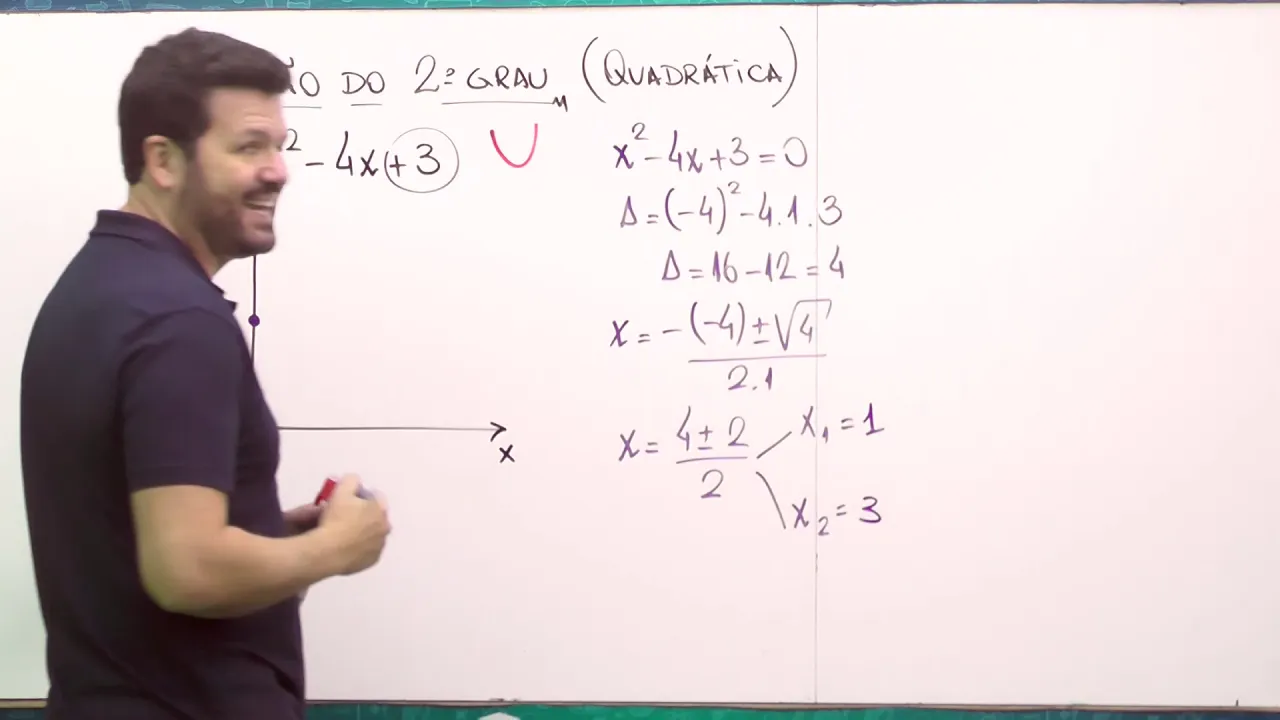 ÃO DO 2º GRAU (QUADRÁTICA)
² - 4x + 3
x² - 4x + 3 = 0
Δ = (-4)² - 4.1.3
Δ = 16 - 12 = 4
x = -(-4) ± √4
2.1
x = 4 ± 2
2
x₁ = 1
x₂ = 3
x